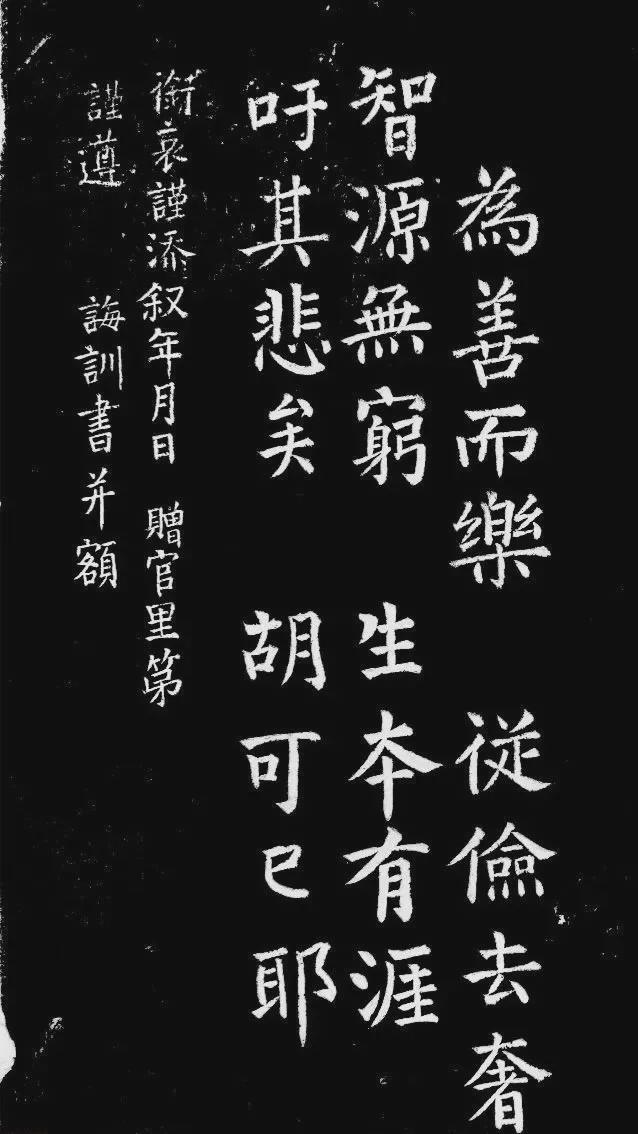 為善而樂 従儉去奢
智源無窮 生本有涯
吁其悲矣 胡可已耶
銜哀謹添叙年月日 贈官里第
謹遵 誨訓書并額